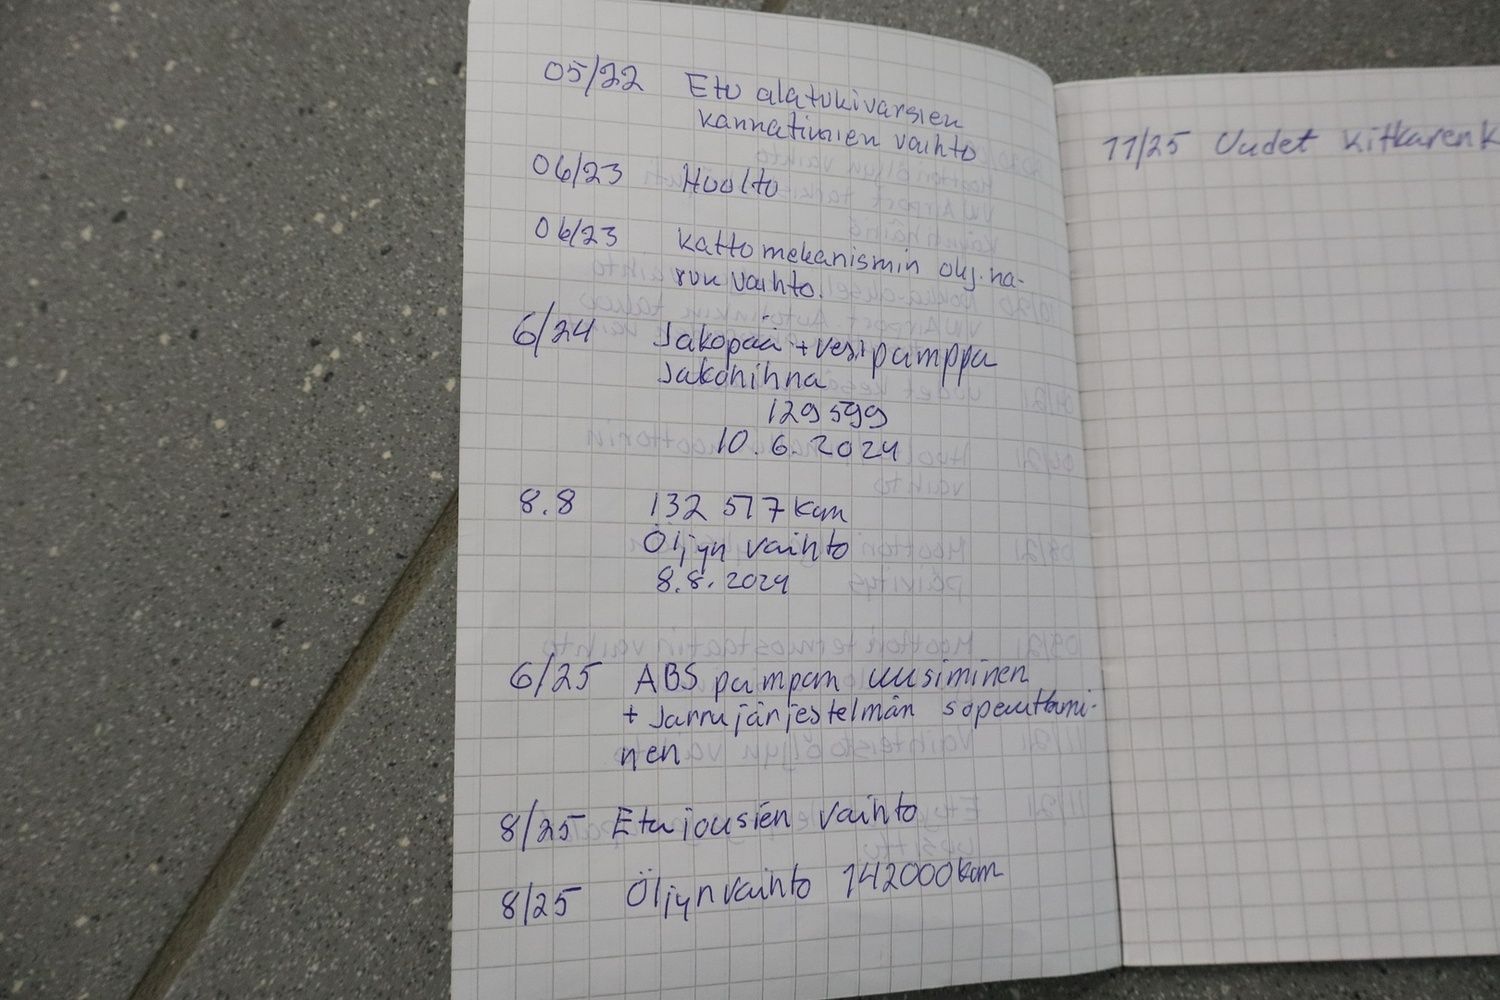 05/22 Etu alatukivarsien
kannatimien vaihto
06/23 Huolto
06/23 Kattomekanismin ohj.na-
run vaihto.
6/24 Jakopää + vesipumppu
Jakohihna
129599
10.6.2024
8.8 132 517 km
Öljyn vaihto
8.8.2024
6/25 ABS pumpun uusiminen
+ Jarrujärjestelmän sopeuttami-
nen
8/25 Etujousien vaihto
8/25 Öljynvaihto 142000km
11/25 Uudet kitkarenk